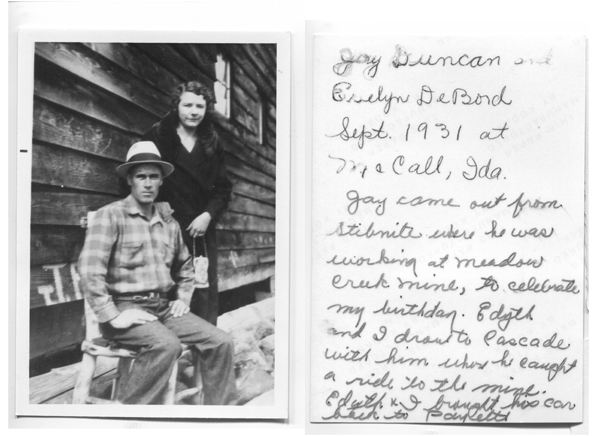 Jay Duncan and
Evelyn DeBord
Sept. 1931 at
McCall, Ida.
Jay came out from
Stibnite where he was
working at meadow
Creek mine, to celebrate
my birthday. Edyth
and I drove to Cascade
with him where he caught
a ride to the mine.
Edyth & I brought his car
back to